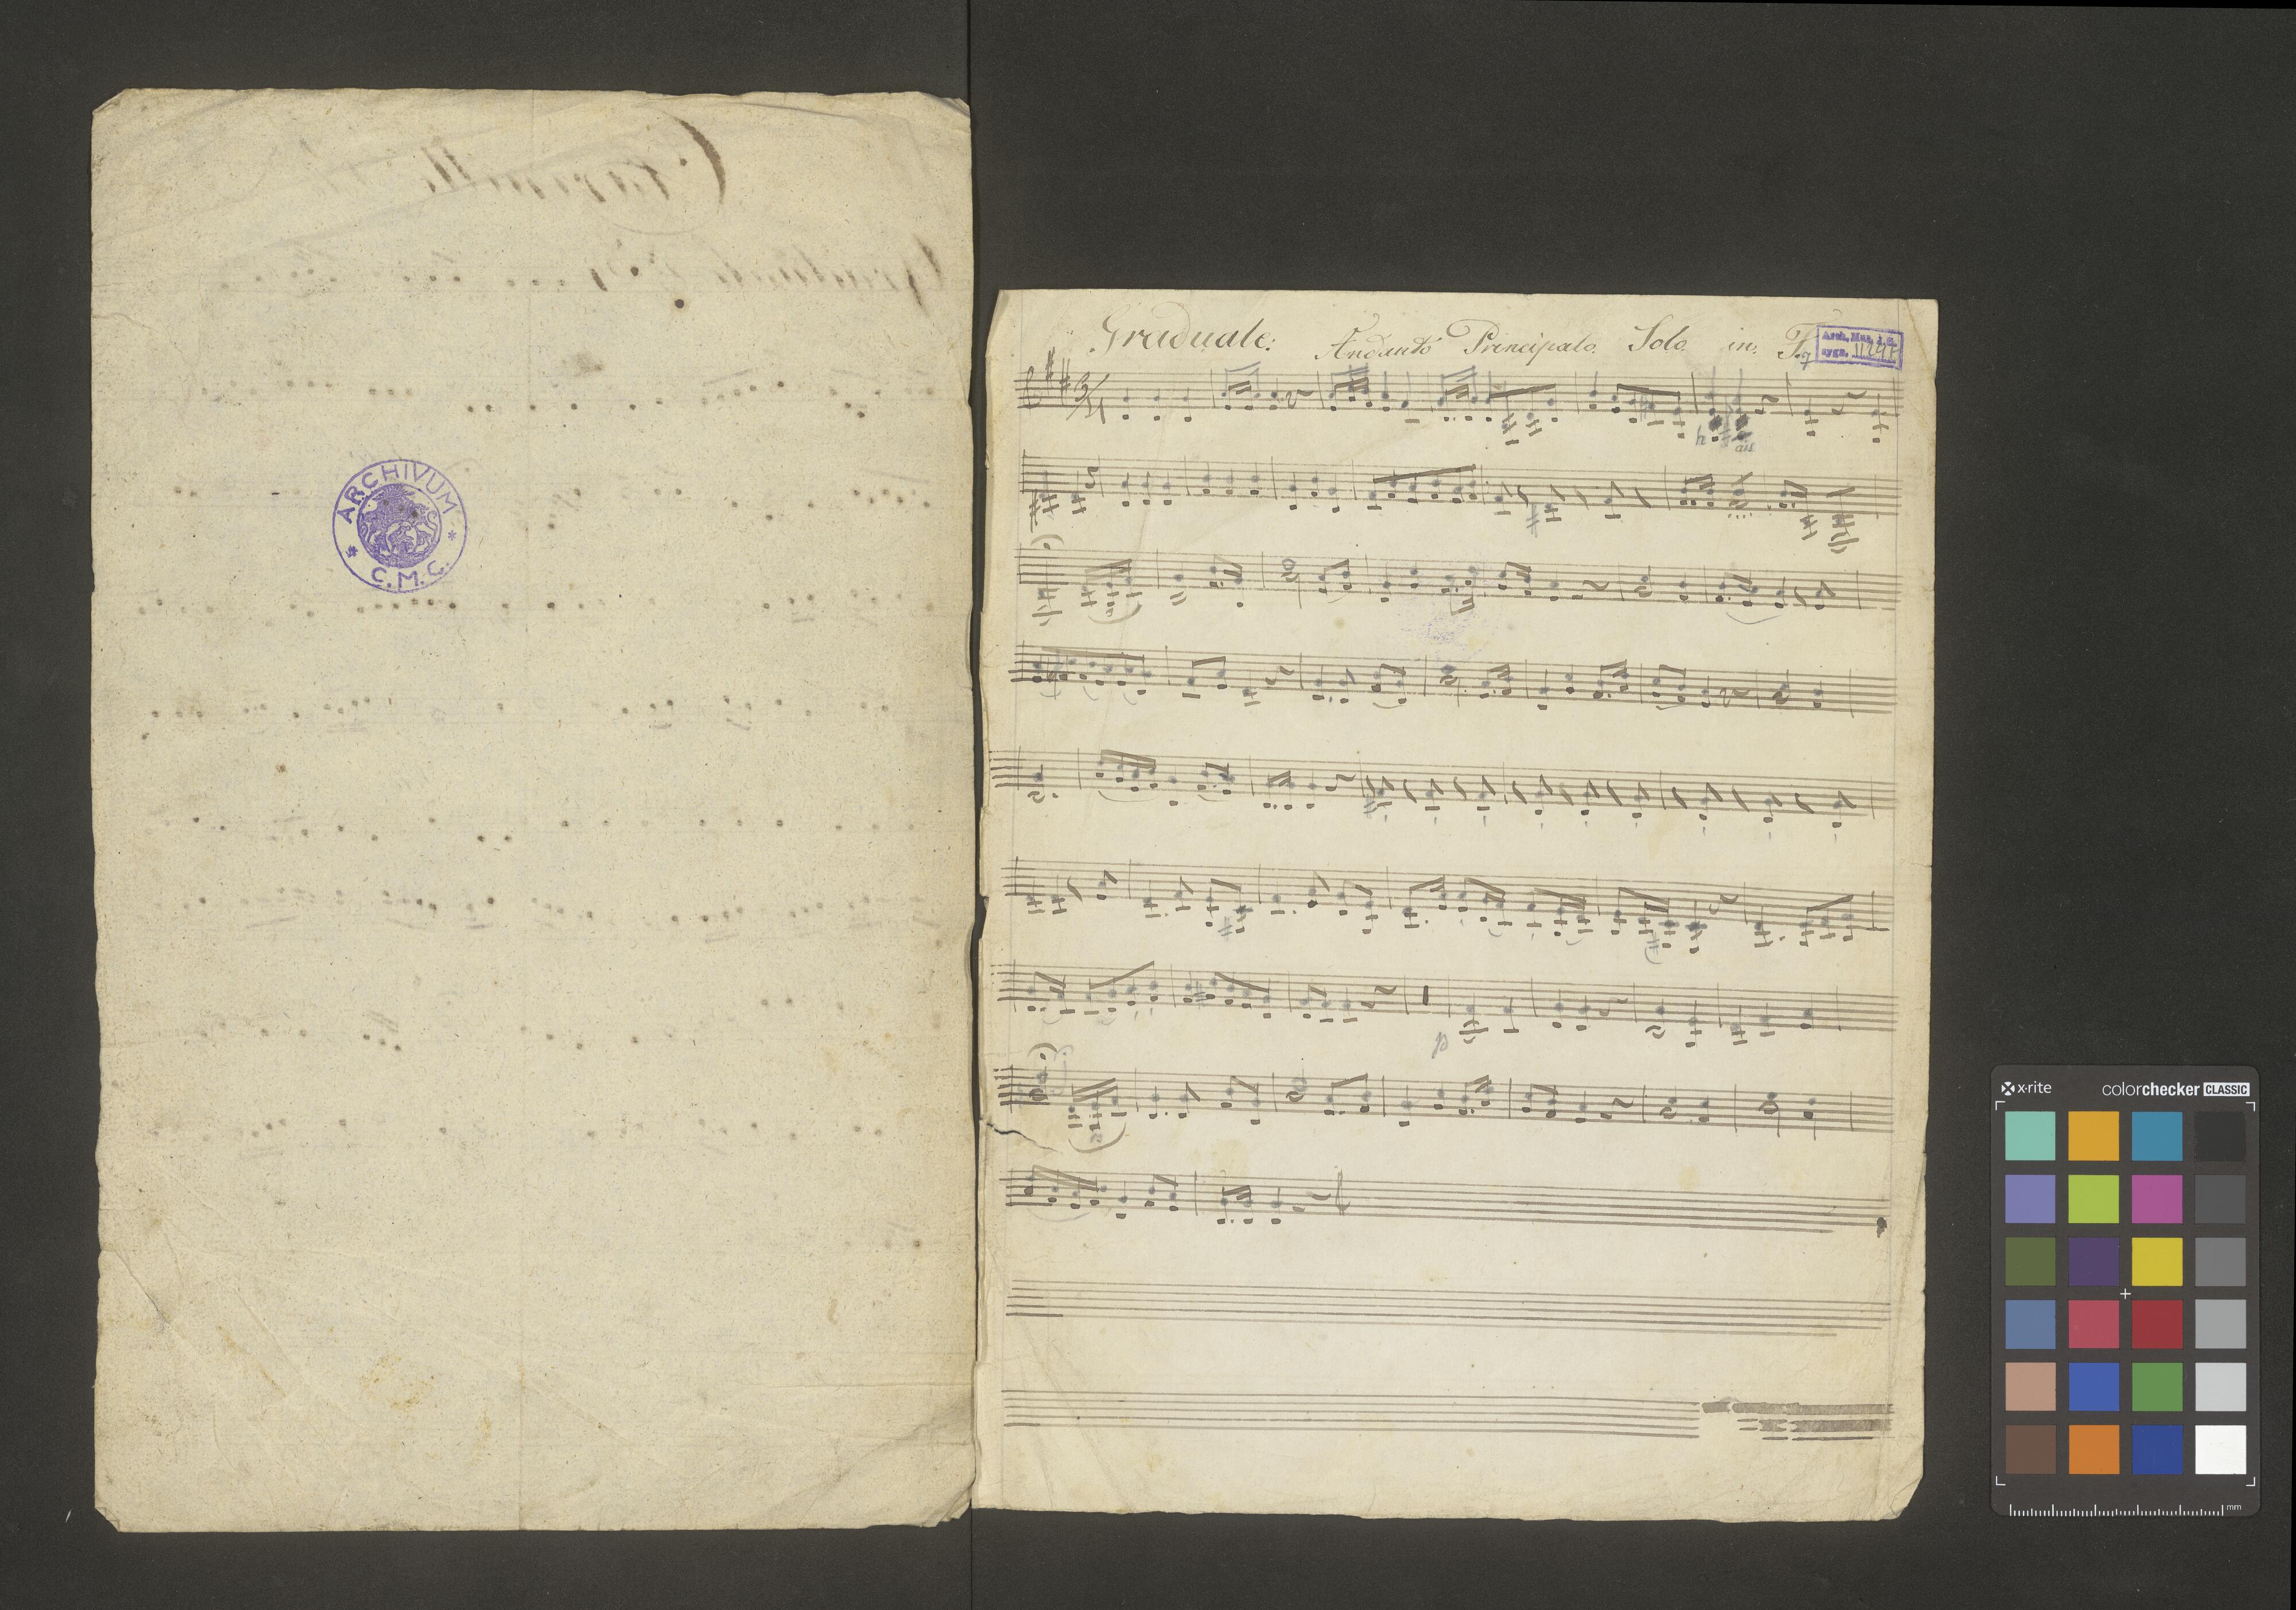 ARCHIVUM
C. M. C.
Graduale: Andante Principale Solo in: F.
Arch. Mus. J. G.
sygn.
h ais
p
x·rite colorchecker CLASSIC
mm